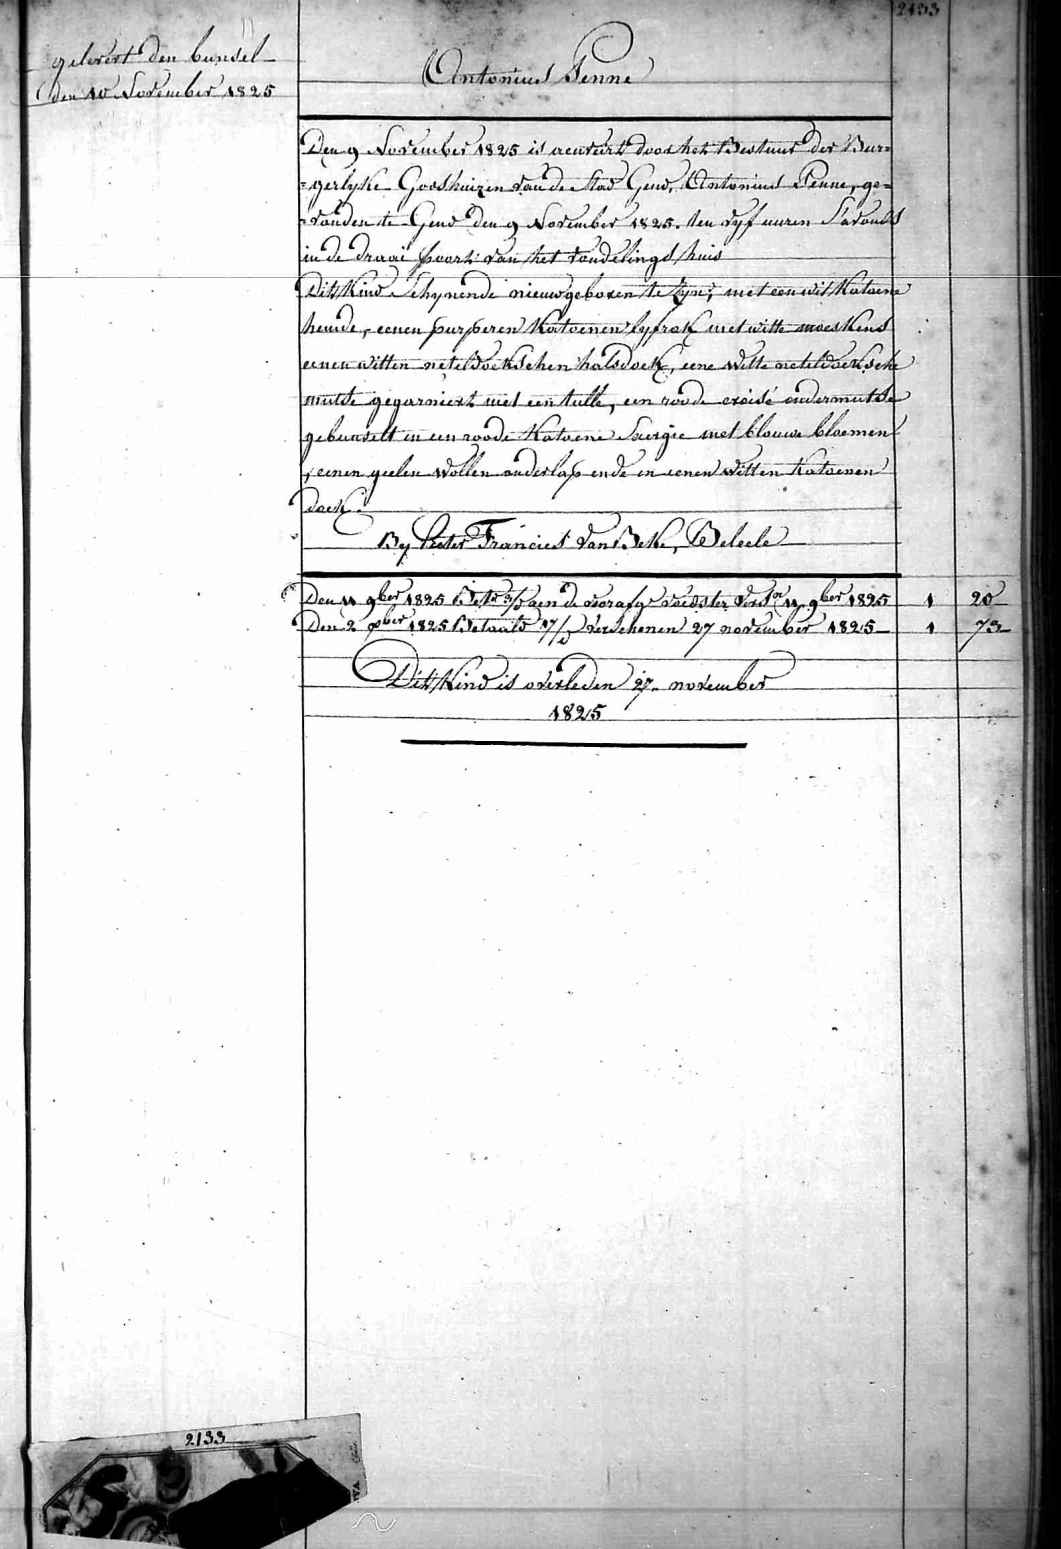 2133
gelevert den bunsel
den 10 November 1825
Antonius Penne
Den 9 November 1825 is aenveirt door het Bestuur der Bur=
=gerlyke Godshuizen van de Stad Gend, Antonius Penne, ge=
=vonden te Gend den 9 November 1825. ten vyf uuren S'avonds
in de draai poort van het vondelings huis
Dit Kind Schynende nieuwgeboren te Zyn, met een wit Katoene
hemde, eenen purperen Katoenen lyfrok met witte moeskens
eenen witten neteldoekschen halsdoek, eene witte neteldoeksche
mutse gegarniert met een tulle, een roode croisé ondermutse
gebunselt in een roode Katoene Sergie met blauwe bloemen
, eenen geelen wollen onderlap ende in eenen witten Katoenen
doek.
By Pieter Francies Van Beke,
Den 11 9ber 1825 aen de voedster 11 9ber 1825 1 20
Den 2 xber 1825 Betaald verschenen 27 november 1825 1 73
Dit Kind is overleden 27 november
1825
2133